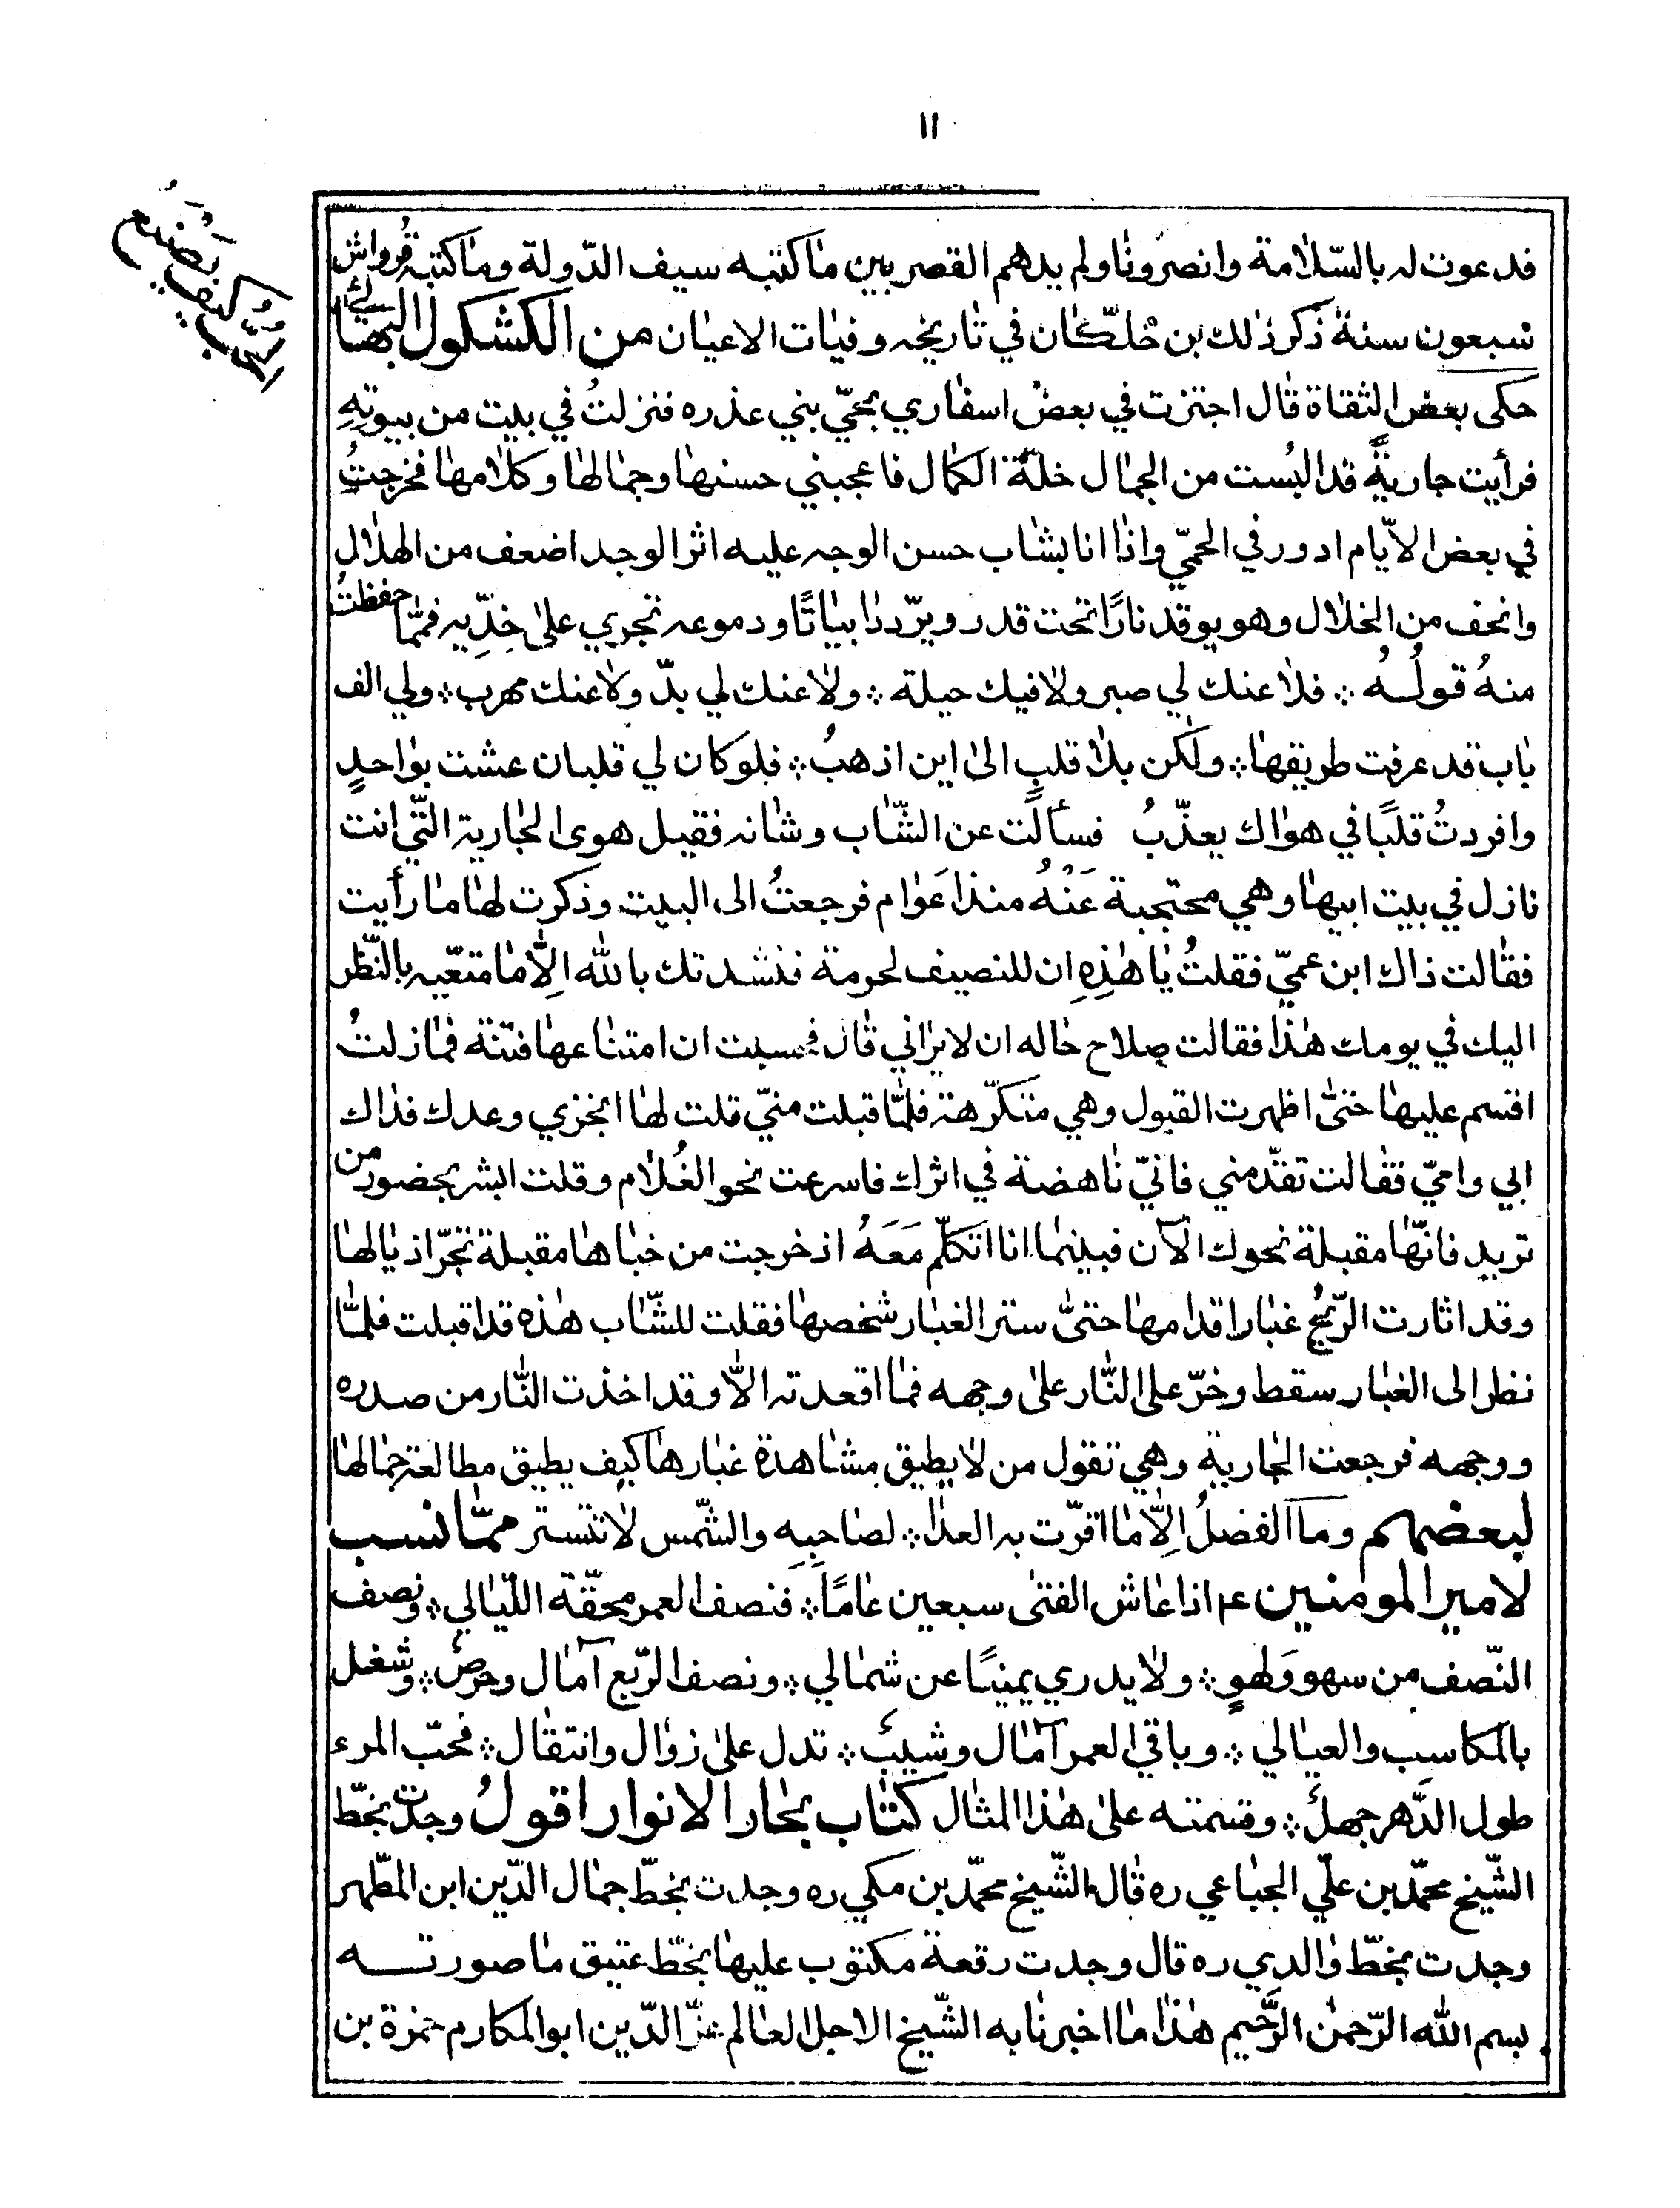 ١١
الحُبُّ كيف يَصنَع
فدعوت له بالسّلامة وانصرفنا ولم يدهم القصر بين ما كتبه سيف الدّولة وما كتبه قُرواش
سبعون سنة ذكر ذلك بن خلّكان في تاريخه وفيات الاعيان من الكشكول البهائي
حكى بعض الثقاة قال اجتزت في بعض اسفاري بحيّ بني عذره فنزلتُ في بيت من بيوتهِ
فرأيت جاريةً قد البُست من الجمال خلّة الكمال فاعجبني حسنها وجمالها وكلامها فخرجتُ
في بعض الايّام ادور في الحيّ واذا انا بشاب حسن الوجه عليه اثر الوجد اضعف من الهلال
وانحف من الخلال وهو يوقد نارًا تحت قدر ويرّدد ابياتًا ودموعه تجري على خدّيه فممّا حفظتُ
منهُ قولُهُ ؞ فلا عنك لي صبر ولا فيك حيلة ؞ ولا عنك لي بدّ ولا عنك مهرب ؞ ولي الف
باب قد عرفت طريقها ؞ ولكن بلا قلبٍ الى اين اذهبُ ؞ فلو كان لي قلبان عشت بواحدٍ
وافردتُ قلبًا في هواك يعذّبُ فسألت عن الشّاب وشانه فقيل هوى الجارية التّي انت
نازل في بيت ابيها وهي محتجبة عَنْهُ منذ اعَوام فرجعتُ الى البيت وذكرت لها ما رأيت
فقالت ذاك ابن عميّ فقلتُ يا هٰذِهِ ان للضيف لحرمة فنشدتك بالله اِلّا ما متعّيه بالنّظر
اليك في يومك هٰذا فقالت صلاح حاله ان لا يراني قال فحسبت ان امتناعها فتنة فما زلتُ
اقتسم عليها حتىّ اظهرت القبول وهي متكرّهة فلمّا قبلت منيّ قلت لها انجزي وعدك فداك
ابي واميّ فقالت تقدّمني فانيّ ناهضة في اثرك فاسرعت نحو الغُلام وقلت ابشر بحضور من
تريد فانّها مقبلة نحوك الآن فبينما انا اتكلّم مَعَهُ اذ خرجت من خباها مقبلة تجرّ اذيالها
وقد اثارت الرّيحُ غبار اقدامها حتىّ ستر الغبار شخصها فقلت للشّاب هٰذه قد اقبلت فلمّا
نظر الى الغبار سقط وخرّ على النّار على وجهه فما اقعدته الاّ وقد اخذت النّار من صدره
ووجهه فرجعت الجارية وهي تقول من لا يطيق مشاهدة غبارها كيف يطيق مطالعة جمالها
لبعضهم وما الفضلُ اِلّا ما اقرّت به العدا ؞ لصاحبِهِ والشّمس لا تتستر ممّا نسب
لامير المومنين ع اذا عاش الفتى سبعين عامًا ؞ فنصف العمر محقّة اللّيالي ؞ ونصف
النّصف من سهو وَلهوٍ ؞ ولا يدري يمينًا عن شمالي ؞ ونصف الرّبع آمال وحرص ؞ وشغل
بالمكاسب والعيالي ؞ وباقي العمر آمال وشيب ؞ تدل على زوال وانتقال ؞ فحبّ المرء
طول الدّهر جهل ؞ وقسمته على هٰذا المثال كتاب بحار الانوار اقولُ وجدت بخطّ
الشّيخ محمّد بن علّي الجباعي ره قال الشّيخ محمّد بن مكي ره وجدت بخطّ جمال الدّين ابن المطّهر
وجدت بخطّ والدي ره قال وجدت رقعة مكتوب عليها بخطّ عتيق ما صورته
بسم الله الرّحمن الرَّحيم هٰذا ما اخبرنا به الشّيخ الاجل العالم عزّ الدّين ابو المكارم حمزة بن